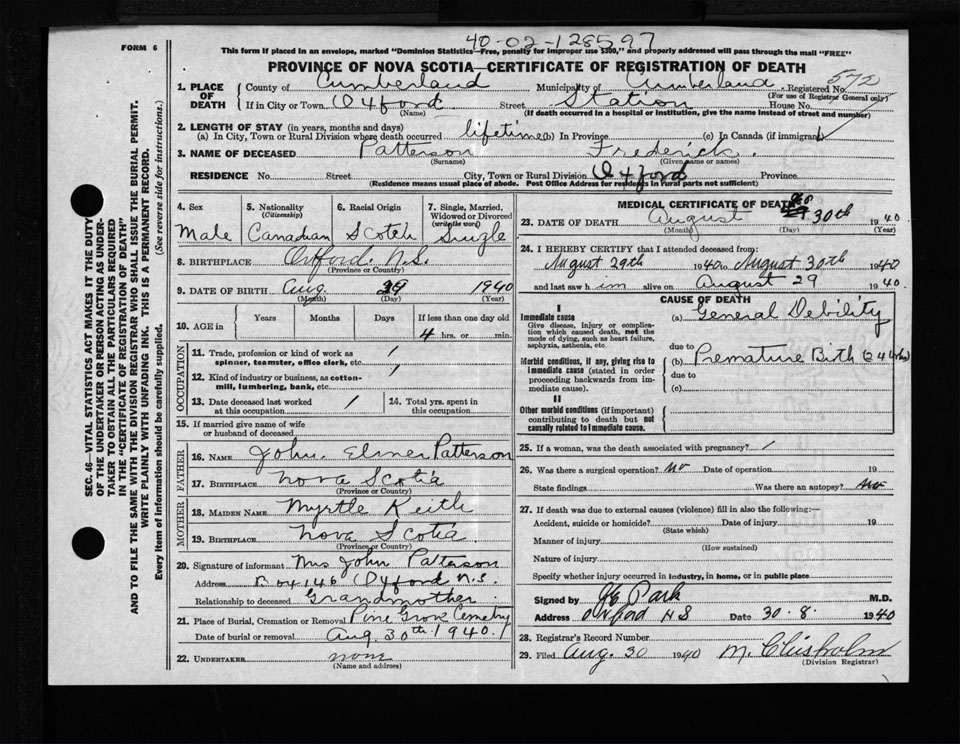 40-02-128597
FORM 6
This form if placed in an envelope, marked "Dominion Statistics—Free, penalty for improper use $300," and properly addressed will pass through the mail "FREE"
PROVINCE OF NOVA SCOTIA—CERTIFICATE OF REGISTRATION OF DEATH
572
1. PLACE OF DEATH County of Cumberland Municipality of Cumberland Registered No.
(For use of Registrar General only)
If in City or Town Oxford Street Station House No.
(Name) (If death occurred in a hospital or institution, give the name instead of street and number)
2. LENGTH OF STAY (in years, months and days)
(a) In City, Town or Rural Division where death occurred lifetime (b) In Province (c) In Canada (if immigrant)
3. NAME OF DECEASED Patterson Frederick.
(Surname) (Given name or names)
RESIDENCE No. Street City, Town or Rural Division Oxford Province
(Residence means usual place of abode. Post Office Address for residents in rural parts not sufficient)
4. Sex 5. Nationality (Citizenship) 6. Racial Origin 7. Single, Married, Widowed or Divorced (write the word)
Male Canadian Scotch Single
8. BIRTHPLACE Oxford. N.S.
(Province or Country)
9. DATE OF BIRTH Aug. 29 1940
(Month) (Day) (Year)
10. AGE in Years Months Days If less than one day
4 hrs. or min.
OCCUPATION
11. Trade, profession or kind of work as spinner, teamster, office clerk, etc. /
12. Kind of industry or business, as cotton-mill, lumbering, bank, etc. /
13. Date deceased last worked at this occupation / 14. Total yrs. spent in this occupation
15. If married give name of wife or husband of deceased
FATHER
16. NAME John. Elmer Patterson
17. BIRTHPLACE Nova Scotia
(Province or Country)
MOTHER
18. MAIDEN NAME Myrtle Keith
19. BIRTHPLACE Nova Scotia.
(Province or Country)
20. Signature of informant Mrs John Patterson
Address Box 146 Oxford N.S.
Relationship to deceased Grandmother.
21. Place of Burial, Cremation or Removal Pine Grove Cemetery
Date of burial or removal Aug. 30th 1940.
22. UNDERTAKER none
(Name and address)
MEDICAL CERTIFICATE OF DEATH
23. DATE OF DEATH August 30th 1940
(Month) (Day) (Year)
24. I HEREBY CERTIFY that I attended deceased from:
August 29th 1940 to August 30th 1940
and last saw him alive on August 29 1940.
CAUSE OF DEATH
I
Immediate cause (a) General Debility
Give disease, injury or complication which caused death, not the mode of dying, such as heart failure, asphyxia, asthenia, etc.
due to
Morbid conditions, if any, giving rise to immediate cause (stated in order proceeding backwards from immediate cause). (b) Premature Birth
due to
(c)
II
Other morbid conditions (if important) contributing to death but not causally related to immediate cause.
25. If a woman, was the death associated with pregnancy? /
26. Was there a surgical operation? No Date of operation 19
State findings Was there an autopsy? no
27. If death was due to external causes (violence) fill in also the following:—
Accident, suicide or homicide? Date of injury 19
(State which)
Manner of injury
(How sustained)
Nature of injury
Specify whether injury occurred in industry, in home, or in public place
Signed by Park M.D.
Address Oxford NS Date 30.8. 1940
28. Registrar's Record Number
29. Filed Aug. 30 1940 M. Chisholm
(Division Registrar)
SEC. 46—VITAL STATISTICS ACT MAKES IT THE DUTY
OF THE UNDERTAKER OR PERSON ACTING AS UNDER-
TAKER TO OBTAIN ALL THE PARTICULARS REQUIRED
IN THE "CERTIFICATE OF REGISTRATION OF DEATH"
AND TO FILE THE SAME WITH THE DIVISION REGISTRAR WHO SHALL ISSUE THE BURIAL PERMIT.
WRITE PLAINLY WITH UNFADING INK. THIS IS A PERMANENT RECORD.
Every item of information should be carefully supplied. (See reverse side for instructions.)